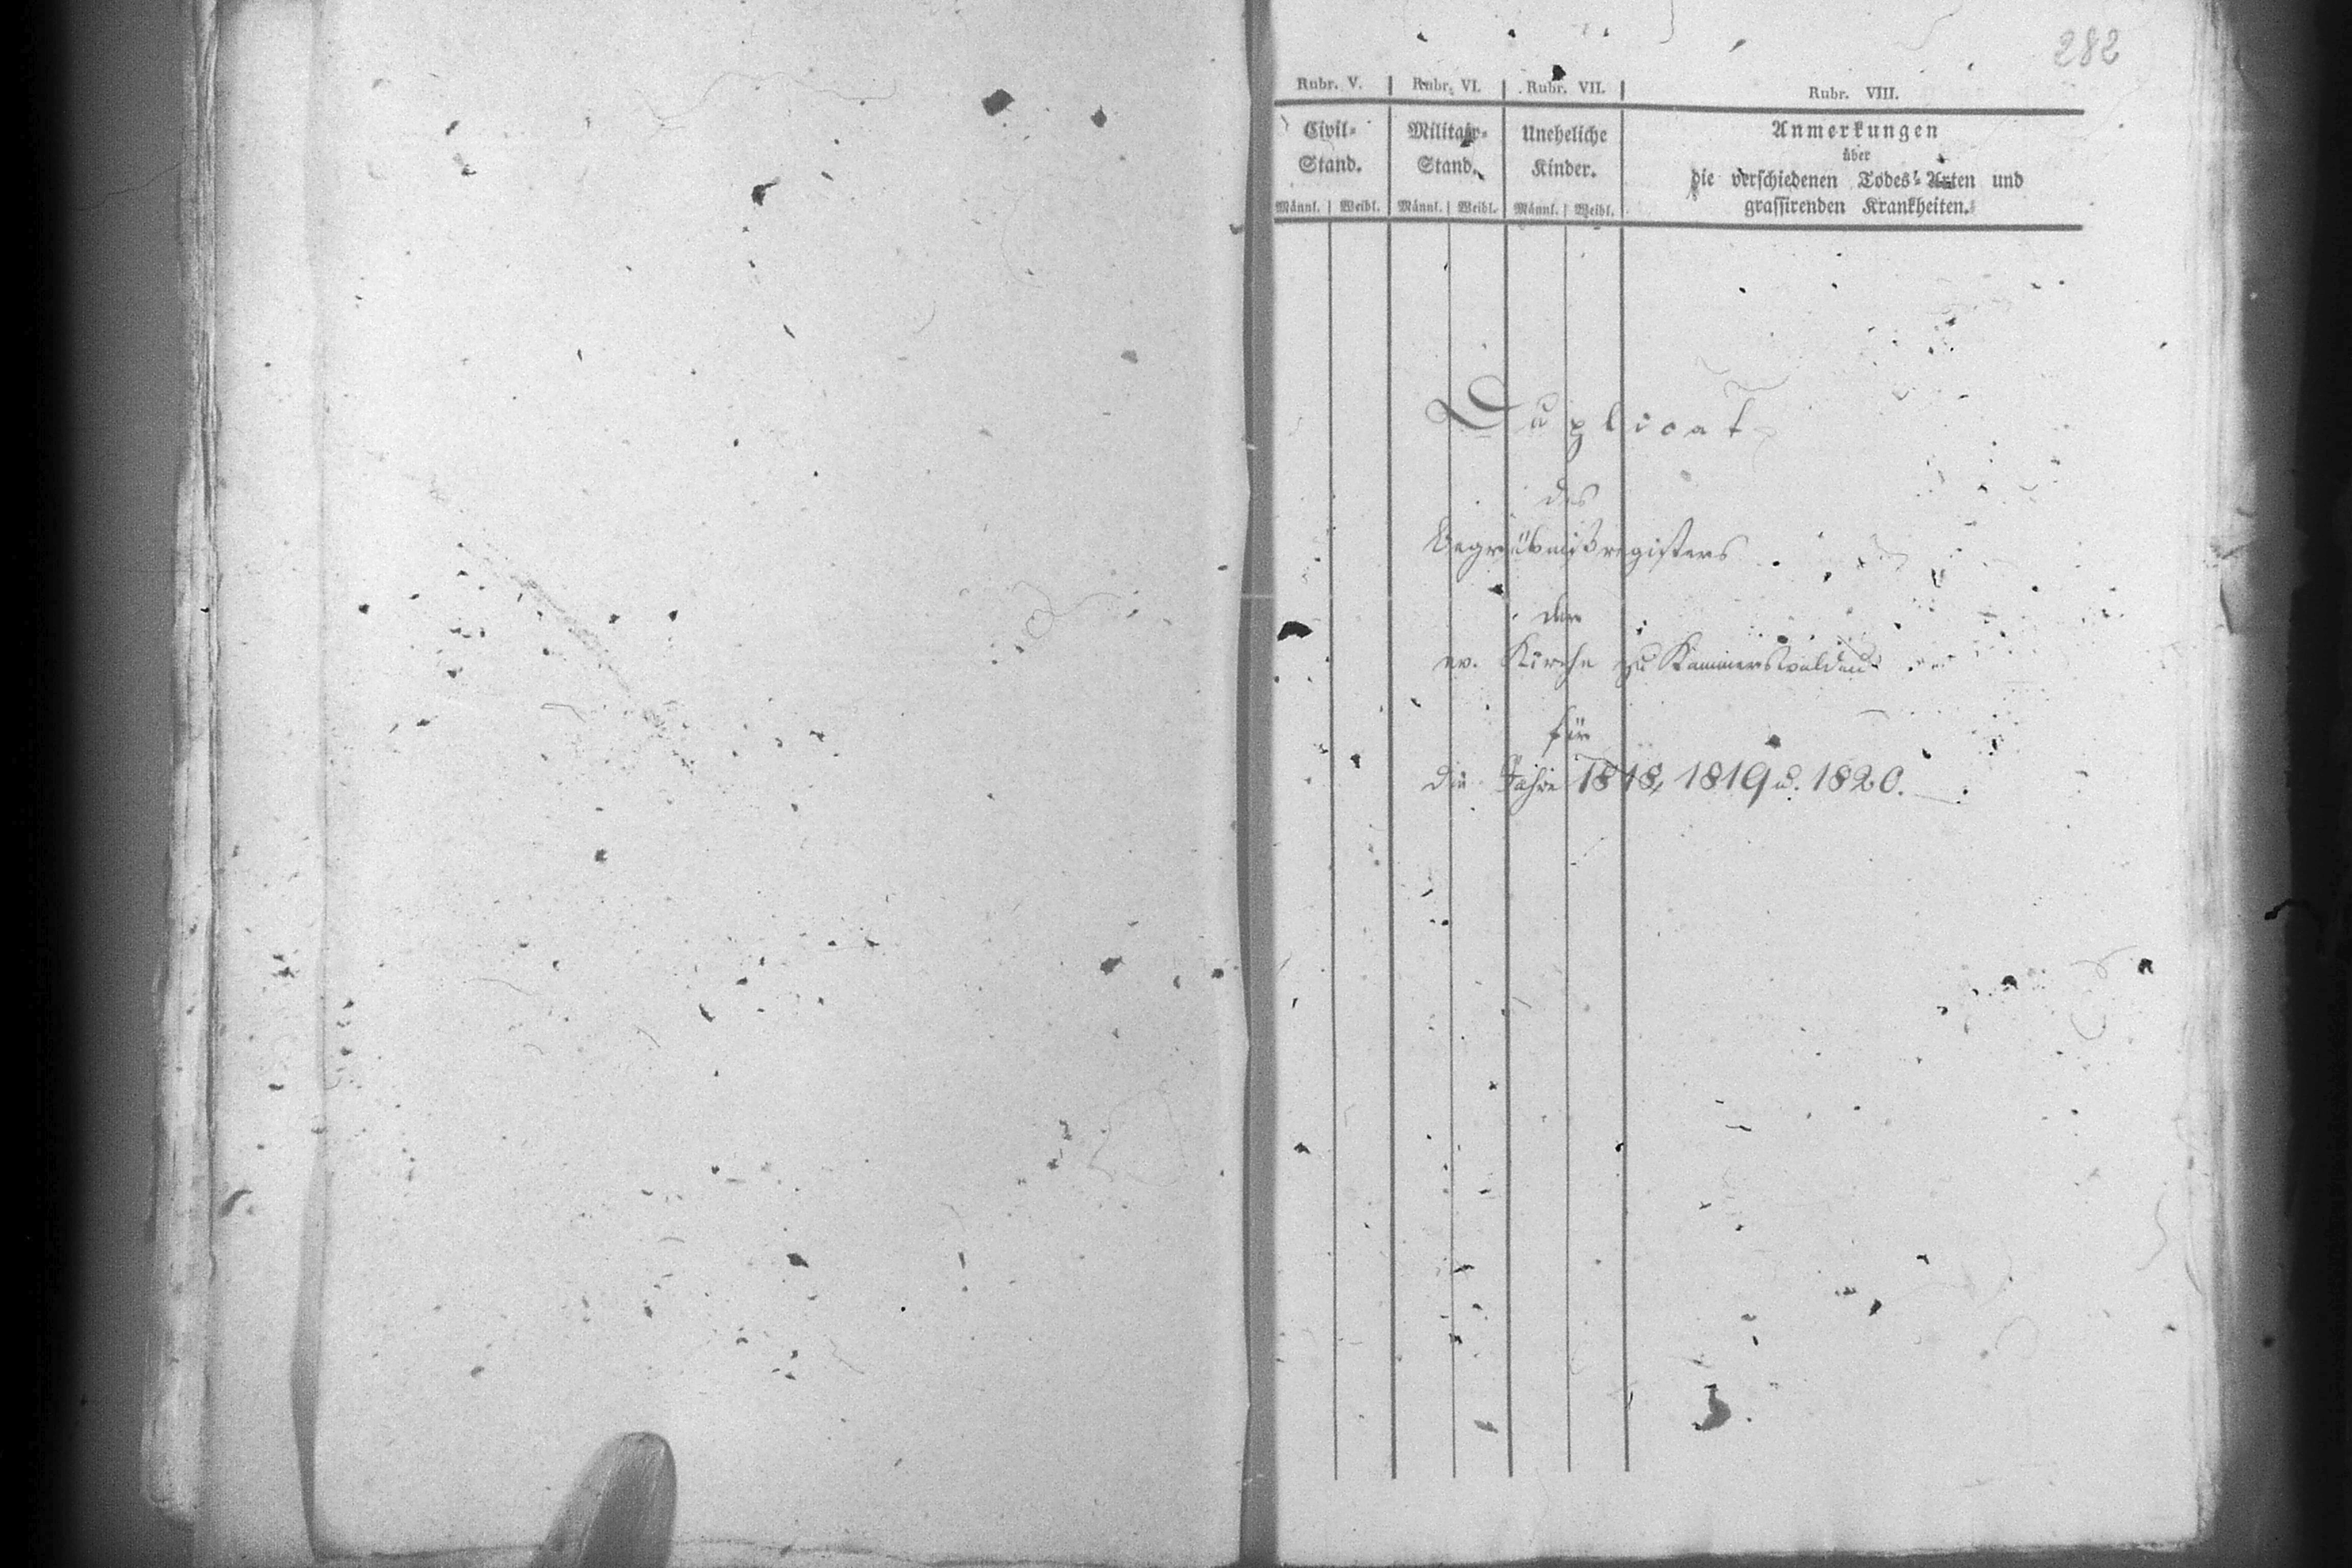 282
Rubr. V. Rubr. VI. Rubr. VII. Rubr. VIII.
Civil= Militair= Uneheliche Anmerkungen
über
Stand. Stand. Kinder. die verschiedenen Todes=Arten und
Männl. Weibl. Männl. Weibl. Männl. Weibl. grassirenden Krankheiten.
Duplicat
des
Begräbnißregisters
der
ev. Kirche zu Kammerswaldau
für
die Jahre 1818, 1819 u. 1820.